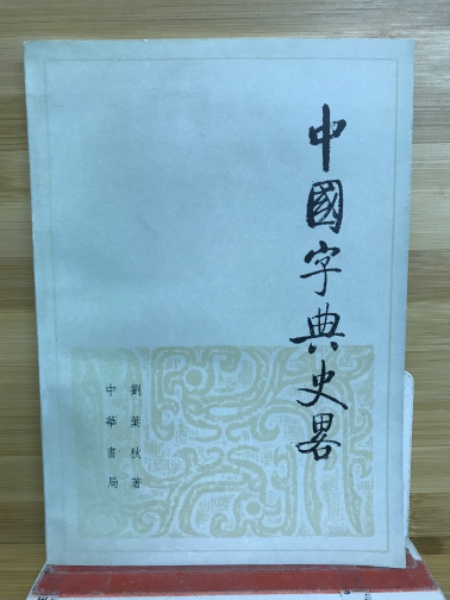 中國字典史畧
劉葉秋著
中華書局